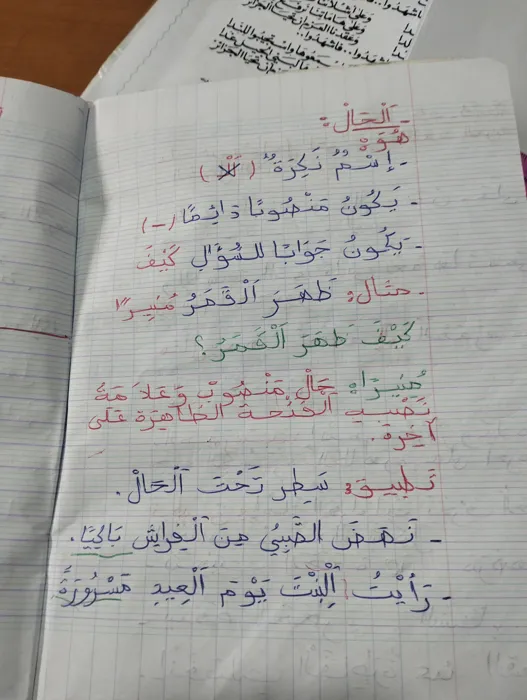 وعقدنا العزم أن تحيا الجزائر
فاشهدوا..
- اَلْحَالْ:
هُوَ:
- إِسْمٌ نَكِرَةٌ (اَلْ)
- يَكُونُ مَنْصُوبًا دَائِمًا (-)
- يَكُونُ جَوَابًا للسُؤَالِ كَيْفَ
- مثال: ظَهَرَ اَلْقَمَرُ مُنِيرًا
كَيْفَ ظَهَرَ اَلْقَمَرُ؟
مُنِيرًا: حَالْ مَنْصُوبْ وَعَلاَمَةُ
نَصْبِهِ الفَتْحَةُ الظَاهِرَة عَلَى
آخِرَهْ.
تَطبيق: سَطِر تَحْتَ اَلْحَالْ.
- نَهَضَ الصَّبِيُ مِنَ اَلْفِرَاشِ بَاكِيًا.
- رَأَيْتُ اَلْبِنْتَ يَوْمَ اَلْعِيدِ مَسْرُورَةً